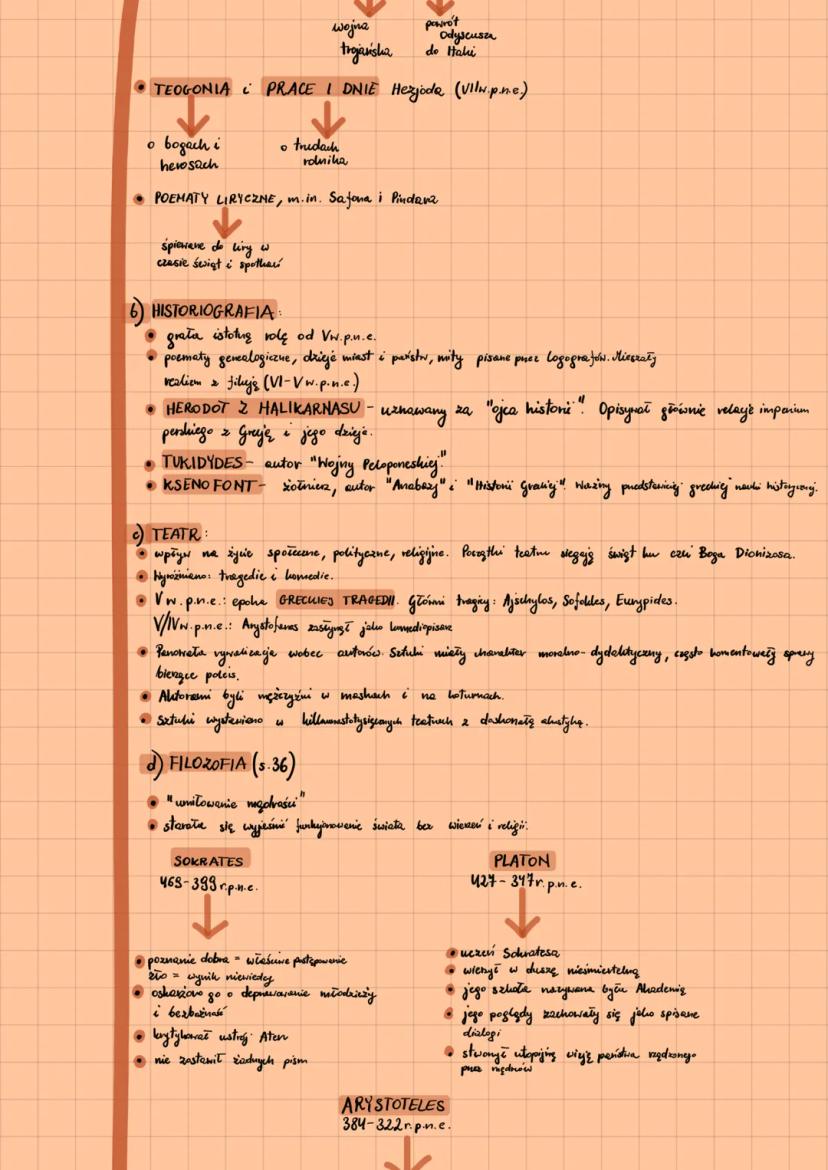 wojna
trojańska
powrót
Odyseusza
do Itaki
TEOGONIA i PRACE I DNIE Hezjoda (VIIw.p.n.e.)
o bogach i
herosach
o trudach
rolnika
POEMATY LIRYCZNE, m.in. Safona i Pindara
śpiewane do liry w
czasie świąt i spotkań
b) HISTORIOGRAFIA:
grała istotną rolę od Vw.p.n.e.
poematy genealogiczne, dzieje miast i państw, mity pisane przez Logografów. Mieszały
realizm z fikcją (VI-Vw.p.n.e.)
HERODOT Z HALIKARNASU - uznawany za "ojca historii". Opisywał głównie relacje imperium
perskiego z Grecją i jego dzieje.
TUKIDYDES - autor "Wojny Peloponeskiej."
KSENOFONT - żołnierz, autor "Anabazy" i "Historii Greckiej". Ważny przedstawiciel greckiej nauki historycznej.
c) TEATR:
wpływ na życie społeczne, polityczne, religijne. Początki teatru sięgają świąt ku czci Boga Dionizosa.
Wyróżniano: tragedie i komedie.
V w.p.n.e.: epoka GRECKIEJ TRAGEDII. Główni tragicy: Ajschylos, Sofokles, Eurypides.
V/IVw.p.n.e.: Arystofanes zasłynął jako komediopisarz
Panowała rywalizacja wobec autorów. Sztuki miały charakter moralno-dydaktyczny, często komentowały sprawy
bieżące poleis.
Aktorami byli mężczyźni w maskach i na koturnach.
Sztuki wystawiano w kilkunastotysięcznych teatrach z doskonałą akustyką.
d) FILOZOFIA (s.36)
"umiłowanie mądrości"
starała się wyjaśnić funkcjonowanie świata bez wierzeń i religii.
SOKRATES
469-399r.p.n.e.
poznanie dobra = właściwe postępowanie
zło = wynik niewiedzy
oskarżono go o deprawowanie młodzieży
i bezbożność
krytykował ustrój Aten
nie zostawił żadnych pism
PLATON
427-347r.p.n.e.
uczeń Sokratesa
wierzył w duszę nieśmiertelną
jego szkoła nazywana była Akademią
jego poglądy zachowały się jako spisane
dialogi
stworzył utopijną wizję państwa rządzonego
przez mędrców
ARYSTOTELES
384-322r.p.n.e.